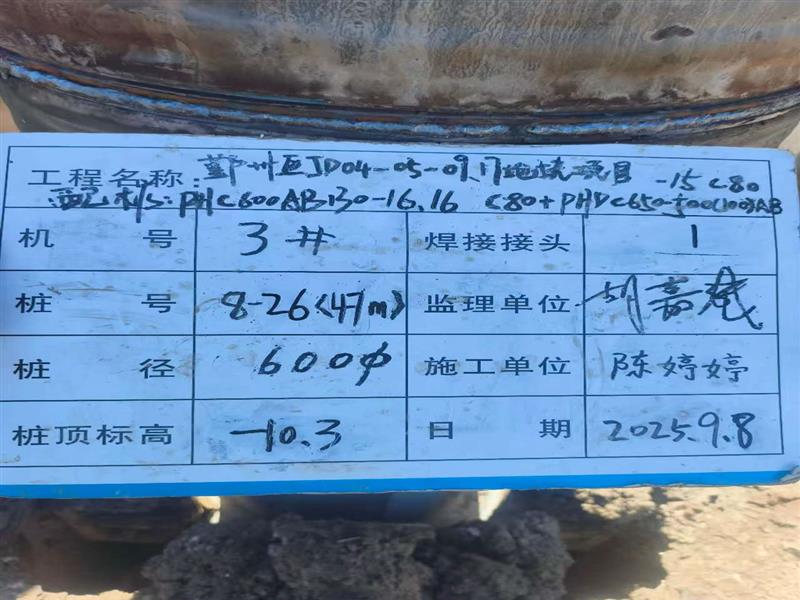 工程名称: 鄞州区JD04-05-09.17地块项目
配桩: PHC600AB130-16.16 C80+PHDC650-500(100)AB -15 C80
机号 3# 焊接接头 1
桩号 8-26(47m) 监理单位 胡嘉斌
桩径 600φ 施工单位 陈婷婷
桩顶标高 -10.3 日期 2025.9.8